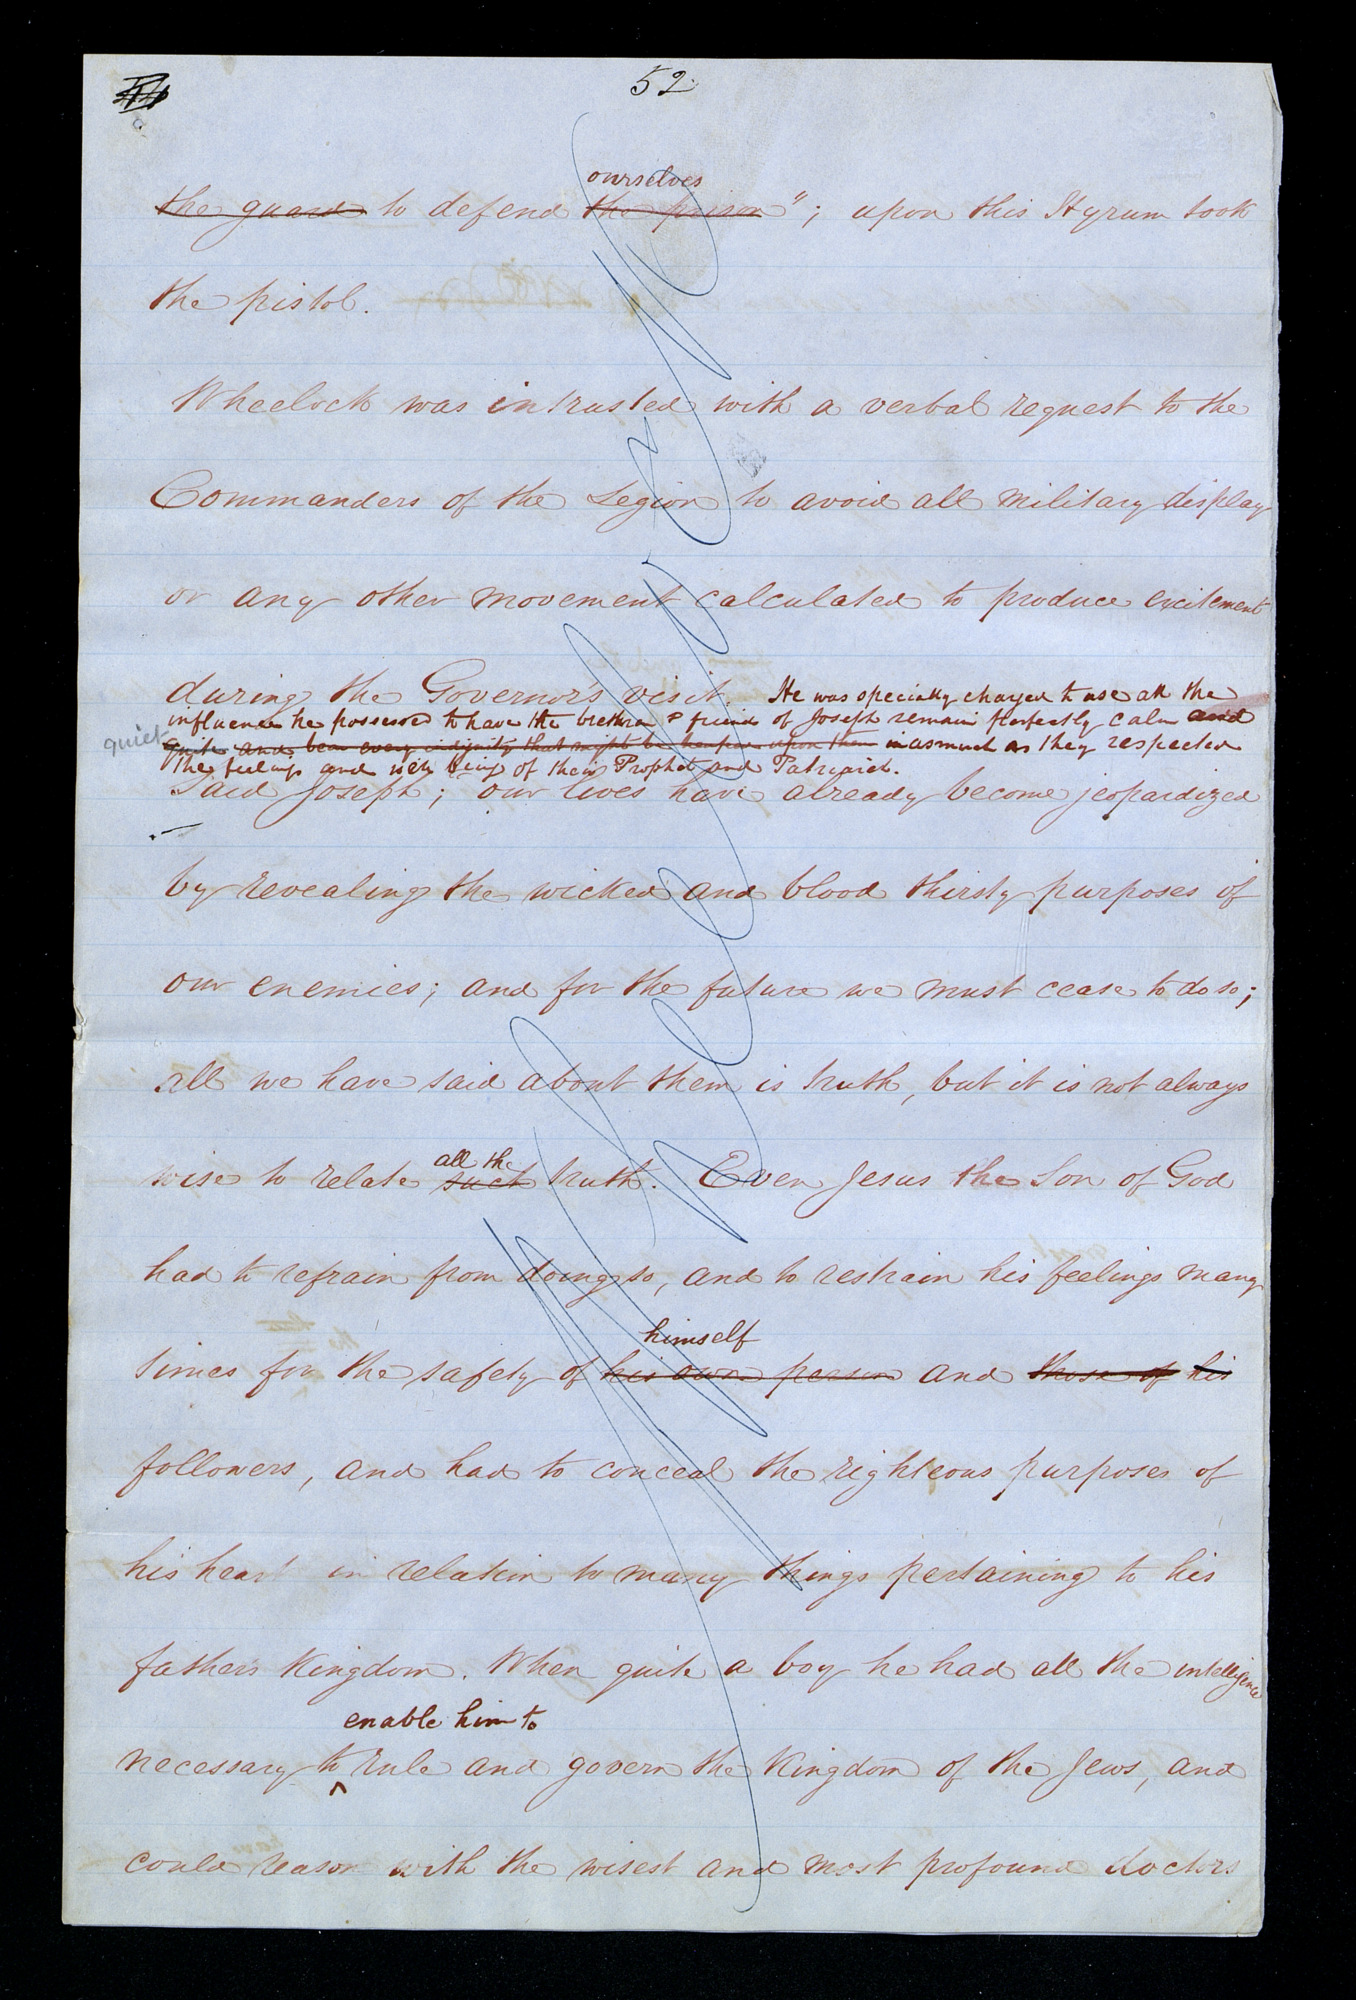 52
ourselves
the guard to defend the prison"; upon this Hyrum took
the pistol.
Wheelock was intrusted with a verbal request to the
Commanders of the Legion to avoid all military display
or any other movement calculated to produce excitement
during the Governor's visit. He was specially charged to use all the
influence he possessed to have the brethren & friends of Joseph remain perfectly calm and
quiet
quite and bear every indignity that might be heaped upon them inasmuch as they respected
the feelings and well being of their Prophet and Patriarch.
Said Joseph; our lives have already become jeopardized
by revealing the wicked and blood thirsty purposes of
our enemies; and for the future we must cease to do so;
all we have said about them is truth, but it is not always
all the
wise to relate such truth. Even Jesus the Son of God
had to refrain from doing so, and to restrain his feelings many
himself
times for the safety of his own person and those of his
followers, and had to conceal the righteous purposes of
his heart in relation to many things pertaining to his
fathers Kingdom. When quite a boy he had all the intelligence
enable him to
necessary to ^ rule and govern the Kingdom of the Jews, and
could reason with the wisest and most profound doctors